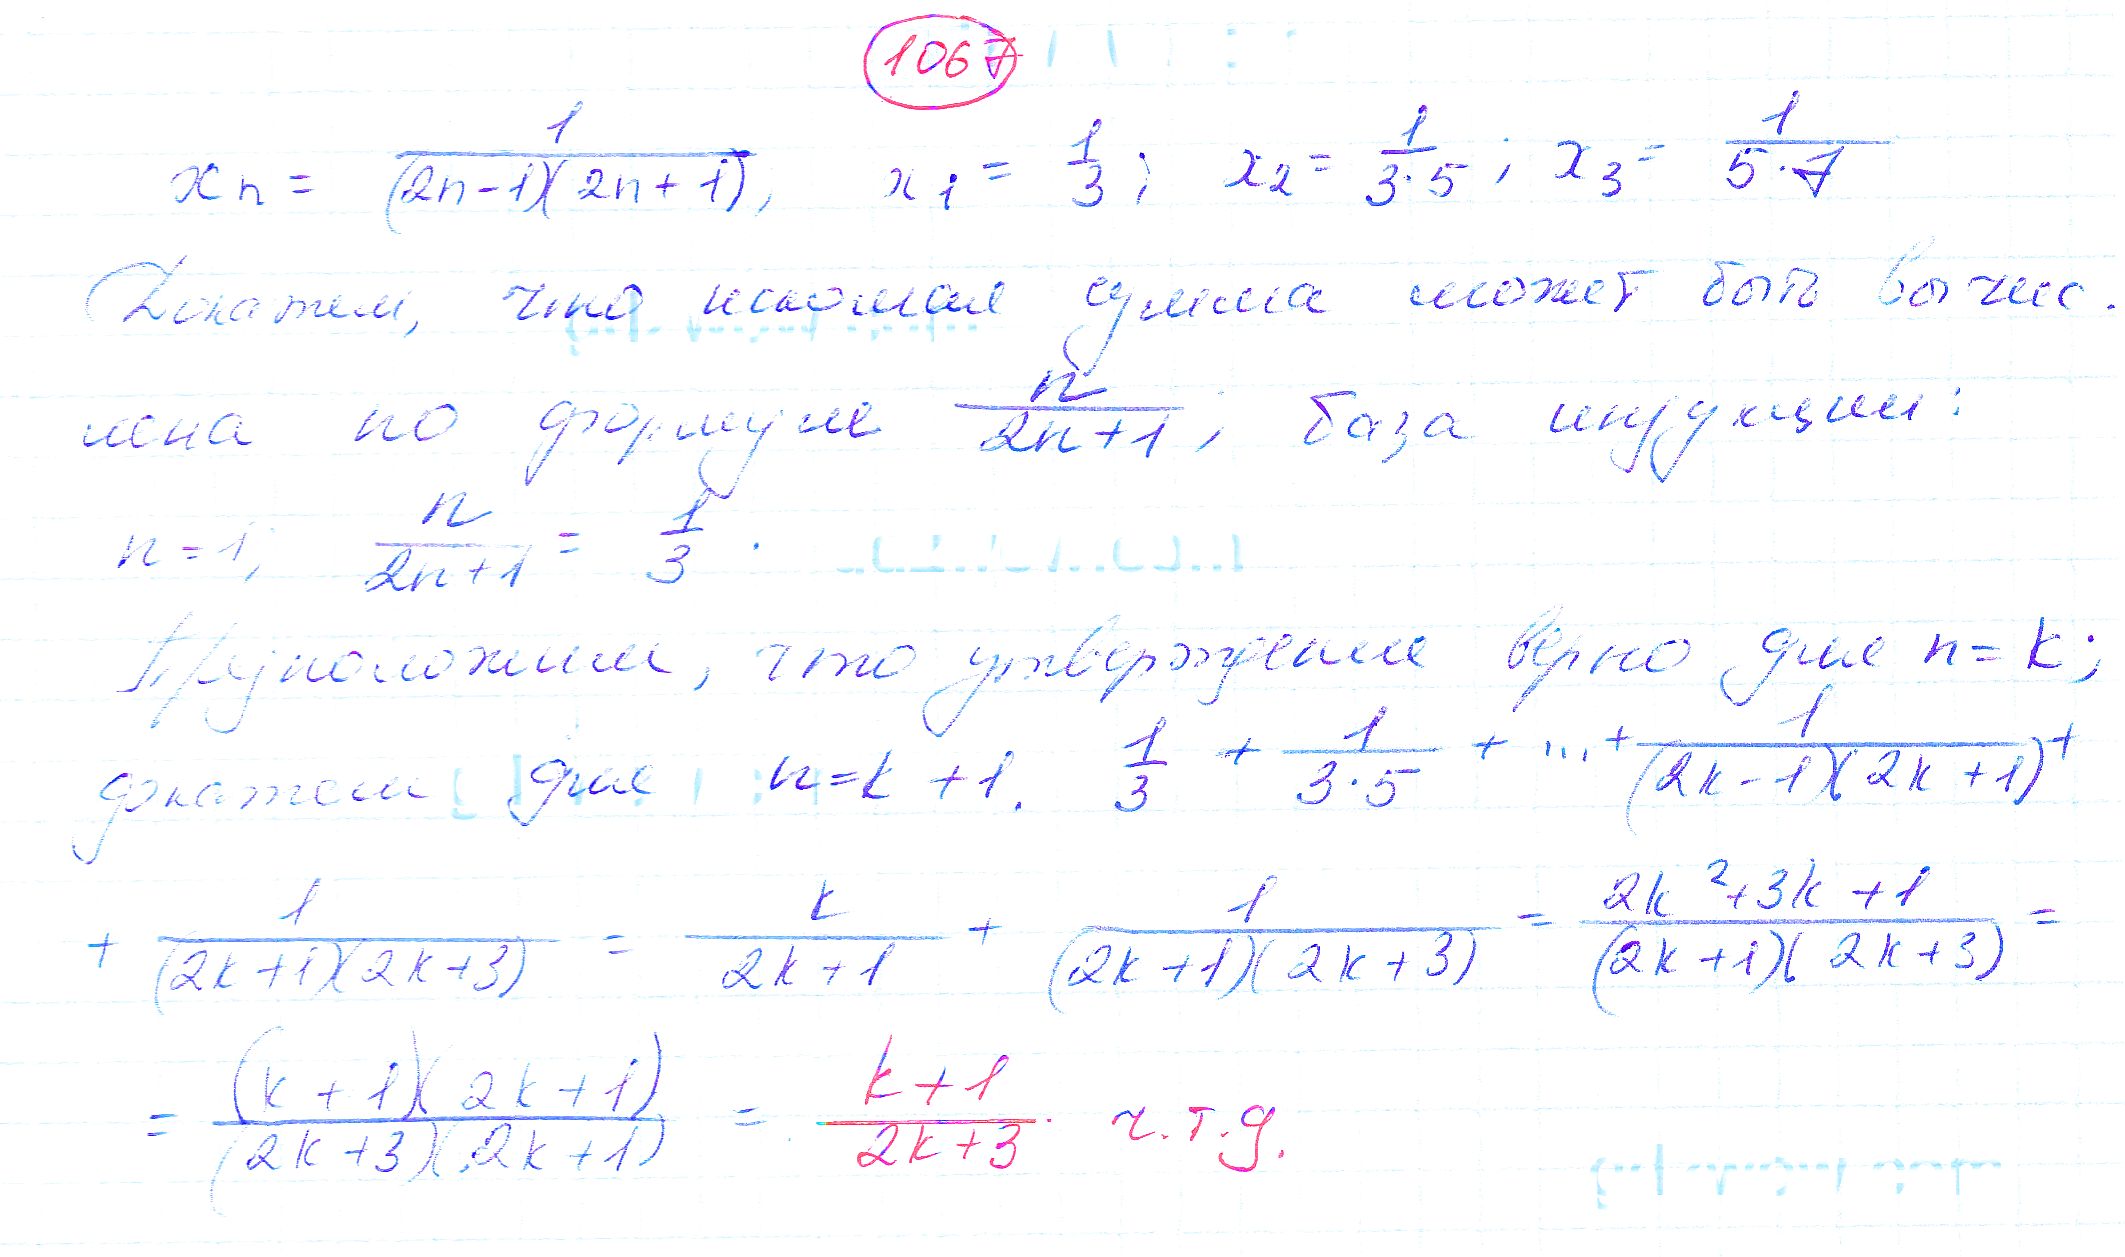 1067
xₙ = 1/((2n-1)(2n+1)), x₁ = 1/3; x₂ = 1/(3·5); x₃ = 1/(5·7)
Докажем, что искомая сумма может быть вычис.
лена по формуле n/(2n+1), база индукции:
n=1, n/(2n+1) = 1/3.
Предположим, что утверждение верно для n=k;
докажем для n=k+1. 1/3 + 1/(3·5) + ... + 1/((2k-1)(2k+1)) +
+ 1/((2k+1)(2k+3)) = k/(2k+1) + 1/((2k+1)(2k+3)) = (2k²+3k+1)/((2k+1)(2k+3)) =
= ((k+1)(2k+1))/((2k+3)(2k+1)) = (k+1)/(2k+3). ч.т.д.